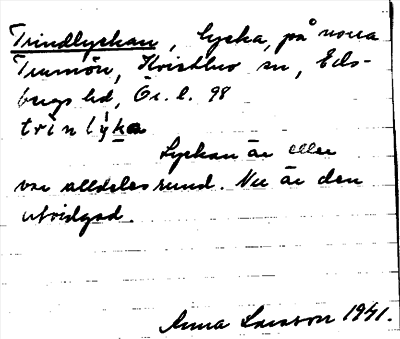 Trindlyckan, lycka, på norra
Trumön, Kvistbro sn, Eds-
bergs hd, Ör. l. 98
trinlyka
Lyckan är eller
var alldeles rund. Nu är den
utvidgad.
Anna Larsson 1941.